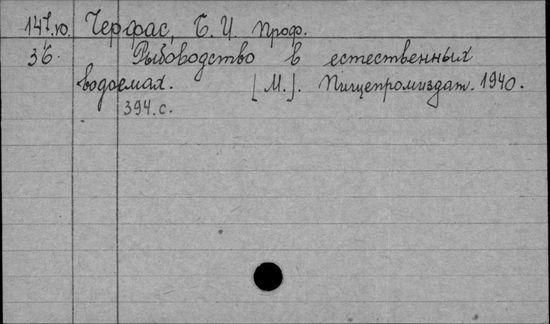 Черфас, Б. И. Проф.
Рыбоводство в естественных
водоемах. [М.]. Пищепромиздат. 1940.
394.с.